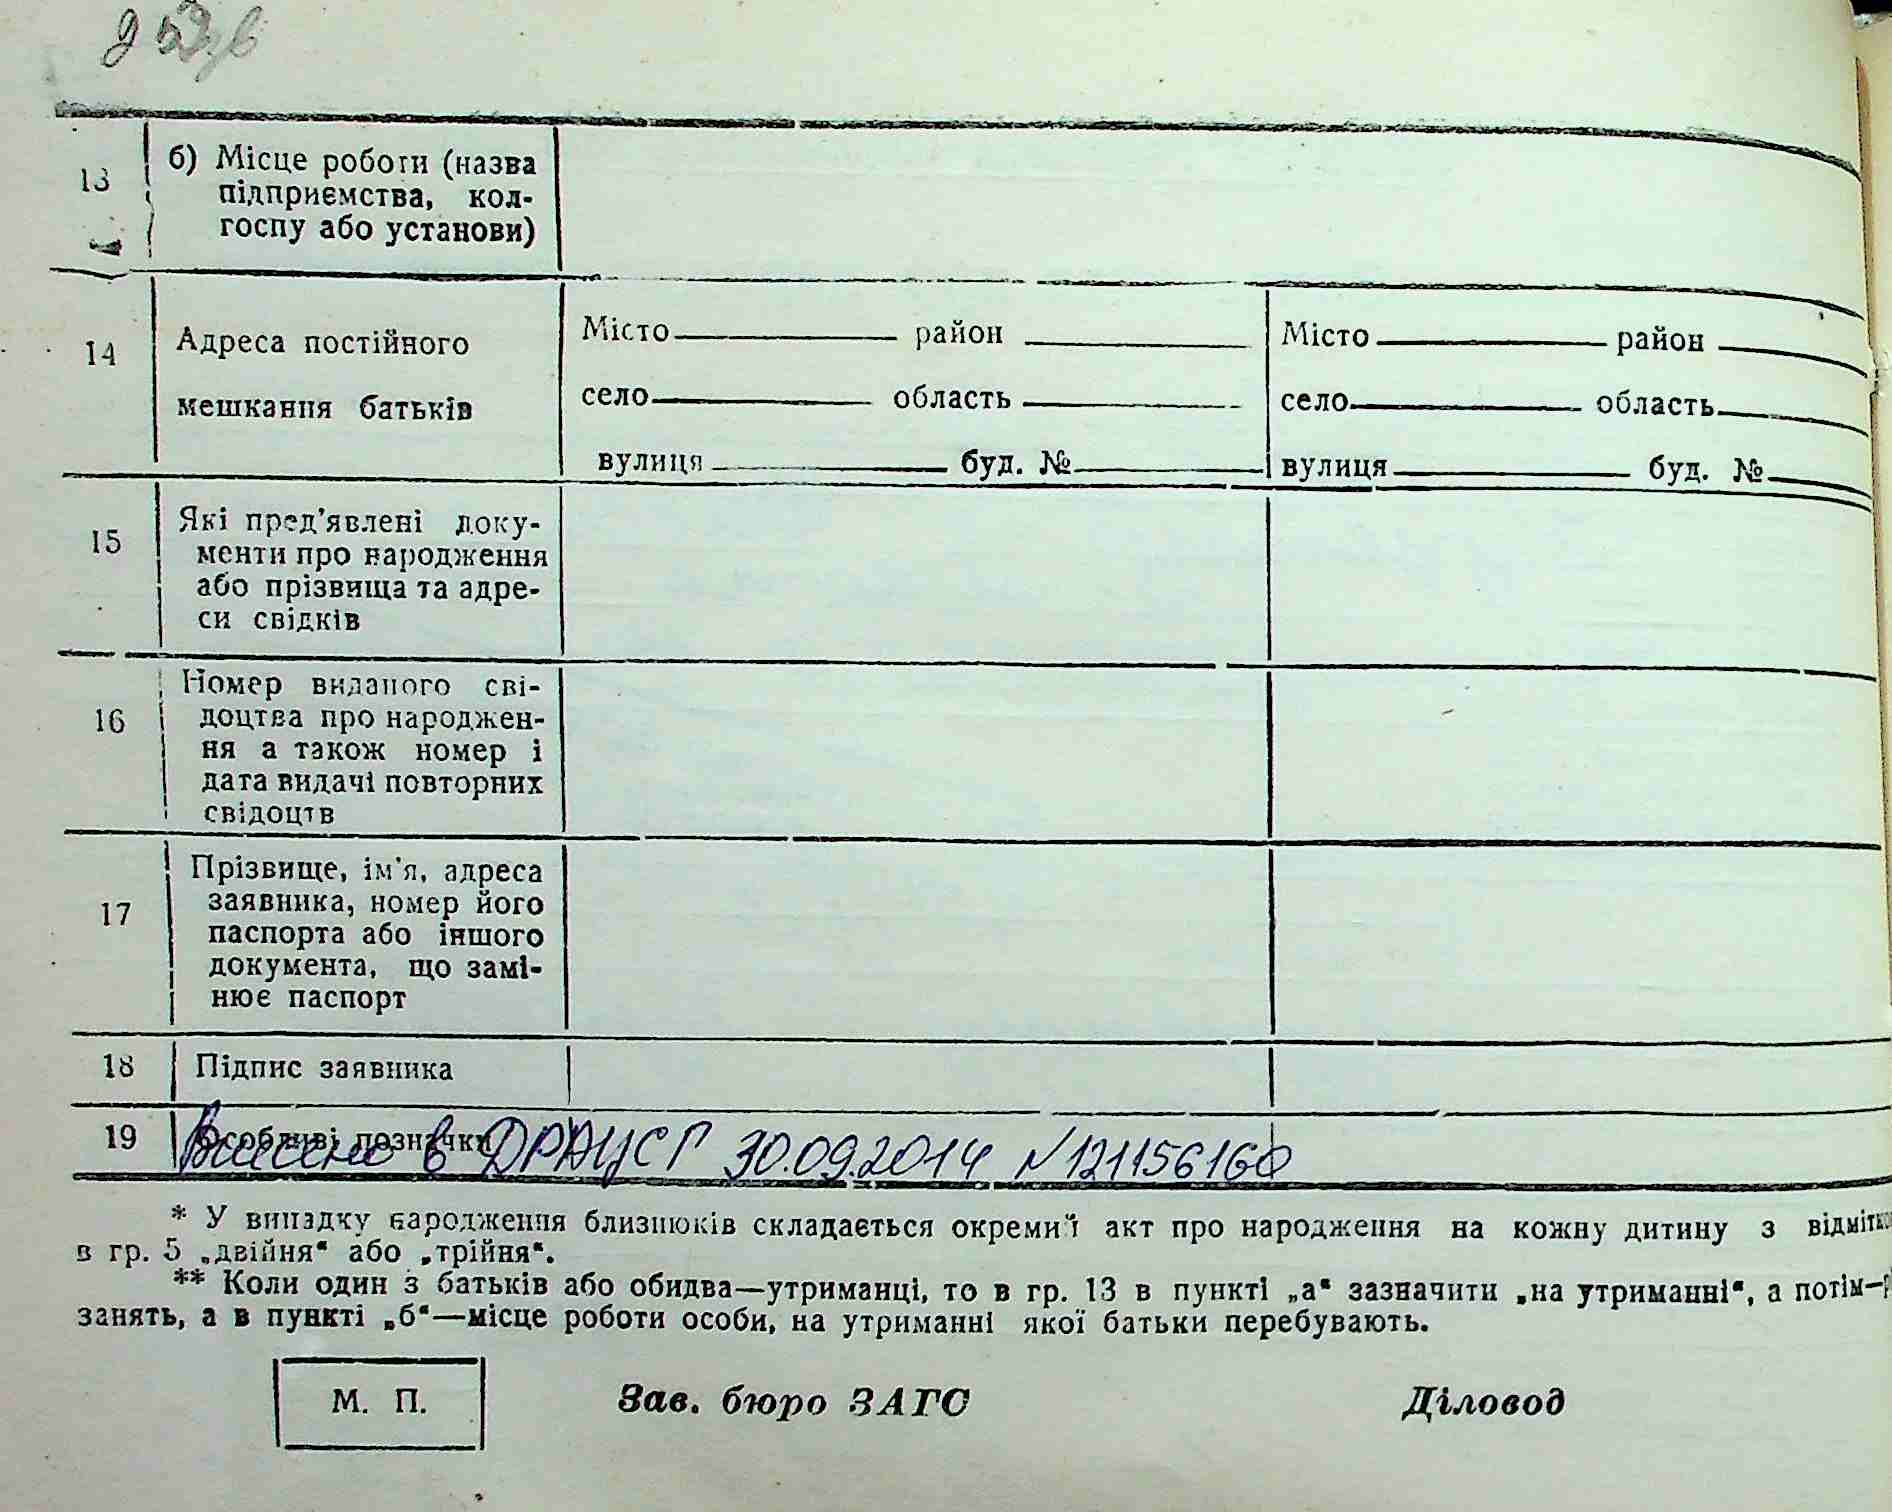 13 б) Місце роботи (назва
підприємства, кол-
госпу або установи)
14 Адреса постійного
мешкання батьків
Місто район
село область
вулиця буд. №
Місто район
село область
вулиця буд. №
15 Які пред'явлені доку-
менти про народження
або прізвища та адре-
си свідків
16 Номер виданого сві-
доцтва про народжен-
ня а також номер і
дата видачі повторних
свідоцтв
17 Прізвище, ім'я, адреса
заявника, номер його
паспорта або іншого
документа, що замі-
нює паспорт
18 Підпис заявника
19 Особливі позначки
Внесено в ДРАЦСГ 30.09.2014 №121156160
* У випадку народження близнюків складається окремий акт про народження на кожну дитину з відмітко
в гр. 5 „двійня“ або „трійня“.
** Коли один з батьків або обидва—утриманці, то в гр. 13 в пункті „а“ зазначити „на утриманні“, а потім—р
занять, а в пункті „б“—місце роботи особи, на утриманні якої батьки перебувають.
М. П. Зав. бюро ЗАГС Діловод